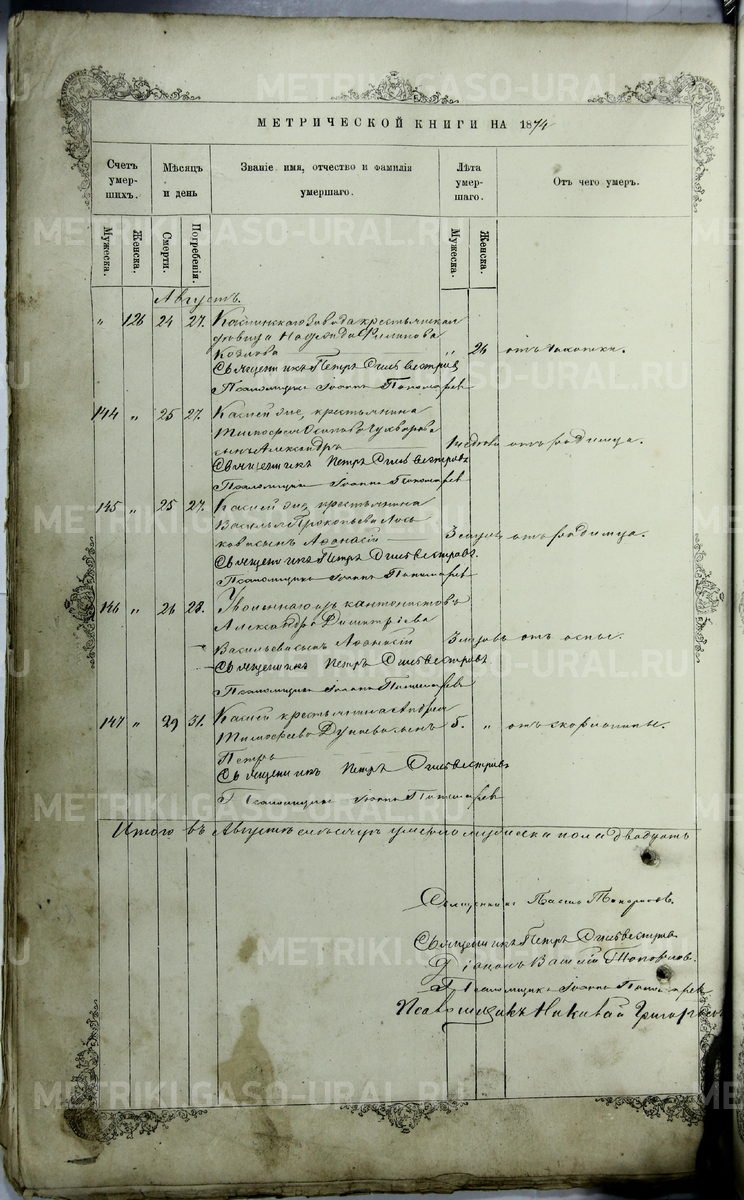 МЕТРИЧЕСКОЙ КНИГИ НА 1874
Счетъ умершихъ.
Мѣсяцъ и день
Званіе имя, отчество и фамилія умершаго.
Лѣта умершаго.
Отъ чего умеръ.
Мужеска.
Женска.
Смерти.
Погребенія.
Мужеска.
Женска.
Августъ.
" 126 24 27. Каслинскаго Завода крестьянская
дѣвица Надежда Филипова
Козлова " 26 отъ чахотки.
Священникъ Петръ Сильвестровъ
Псаломщикъ Іоаннъ Пономаревъ
144 " 25 27. Каслей же, крестьянина
Тимофея Осипова
сынъ Александръ 1 недѣли отъ родимца.
Священникъ Петръ Сильвестровъ
Псаломщикъ Іоаннъ Пономаревъ
145 " 25 27. Каслей же, крестьянина
Василья Прокопьева Лось
кова сынъ Аѳонасій 3 отъ родимца.
Священникъ Петръ Сильвестровъ.
Псаломщикъ Іоаннъ Пономаревъ
146 " 26 28. Уволеннаго изъ кантонистовъ
Александра Димитріева
Васильева сынъ Аѳонасій 3 отъ оспы.
Священникъ Петръ Сильвестровъ
Псаломщикъ Іоаннъ Пономаревъ
147 " 29 31. Каслей крестьянина Андрея
Тимофеева сынъ 5. " отъ скорлатины.
Петръ
Священникъ Петръ Сильвестровъ
Псаломщикъ Іоаннъ Пономаревъ
Итого въ Августѣ мѣсяцѣ умерло мужеска пола двадцать
Священникъ
Священникъ Петръ Сильвестровъ
Діаконъ Василій Топорковъ.
Псаломщикъ Іоаннъ Пономаревъ
Псаломщикъ Николай
METRIKI.GASO-URAL.RU